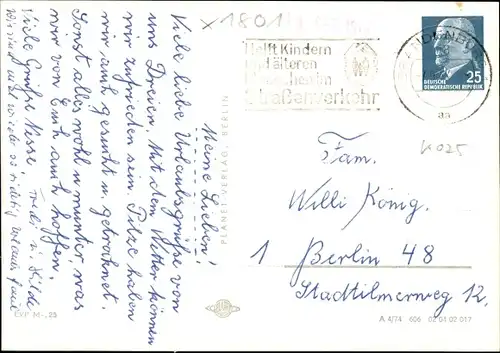 x 1801
Helft Kindern
und älteren
Menschen im
Straßenverkehr
DEUTSCHE
DEMOKRATISCHE REPUBLIK
25
aa
K 025
Meine Lieben!
Viele liebe Urlaubsgrüße von
uns Dreien. Mit dem Wetter können
wir zufrieden sein. Pilze haben
wir auch gesucht u. getrocknet.
Sonst alles wohl u. munter was
wir von Euch auch hoffen.
Viele Grüße
Fam.
Willi König.
1 Berlin 48
Stadtilmerweg 12.
PLANET-VERLAG, BERLIN
A 4/74 606 02 04 02 017